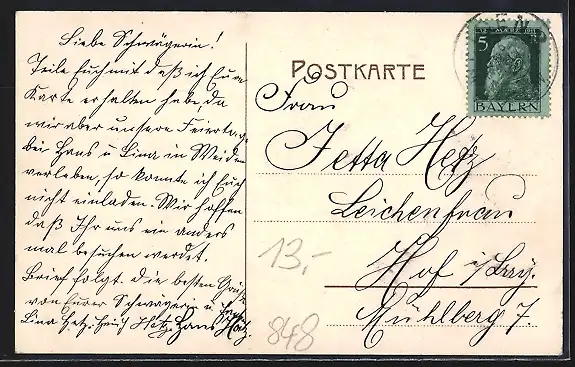 Liebe Schwägerin!
Teile Euch mit daß ich Eure
Karte erhalten habe, da
wir aber unsere Feiertage
bei Hans u Lina in Weiden
verleben, so konnte ich Euch
nicht einladen. Wir hoffen
daß Ihr uns ein anders
mal besuchen werdet.
Brief folgt. die besten Grüße
von Eurer Schwägerin u.
Lina Hetz. Heinrich Hetz. Hans Hetz.
POSTKARTE
12. MÄRZ 1911
5
BAYERN
Frau
Jetta Hetz
Leichenfrau
Hof i/Bay.
Mühlberg 7.
13,-
848